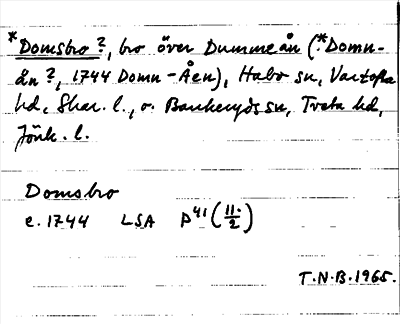 *Domsbro?, bro över Dummeån (?*Domn-
ån?, 1744 Domn-Åen), Habo sn, Vartofta
hd, Skar. l., o. Bankeryds sn, Tveta hd,
Jönk. l.
Domsbro
e. 1744 LSA P41 (11:/2)
T.N.B. 1965.